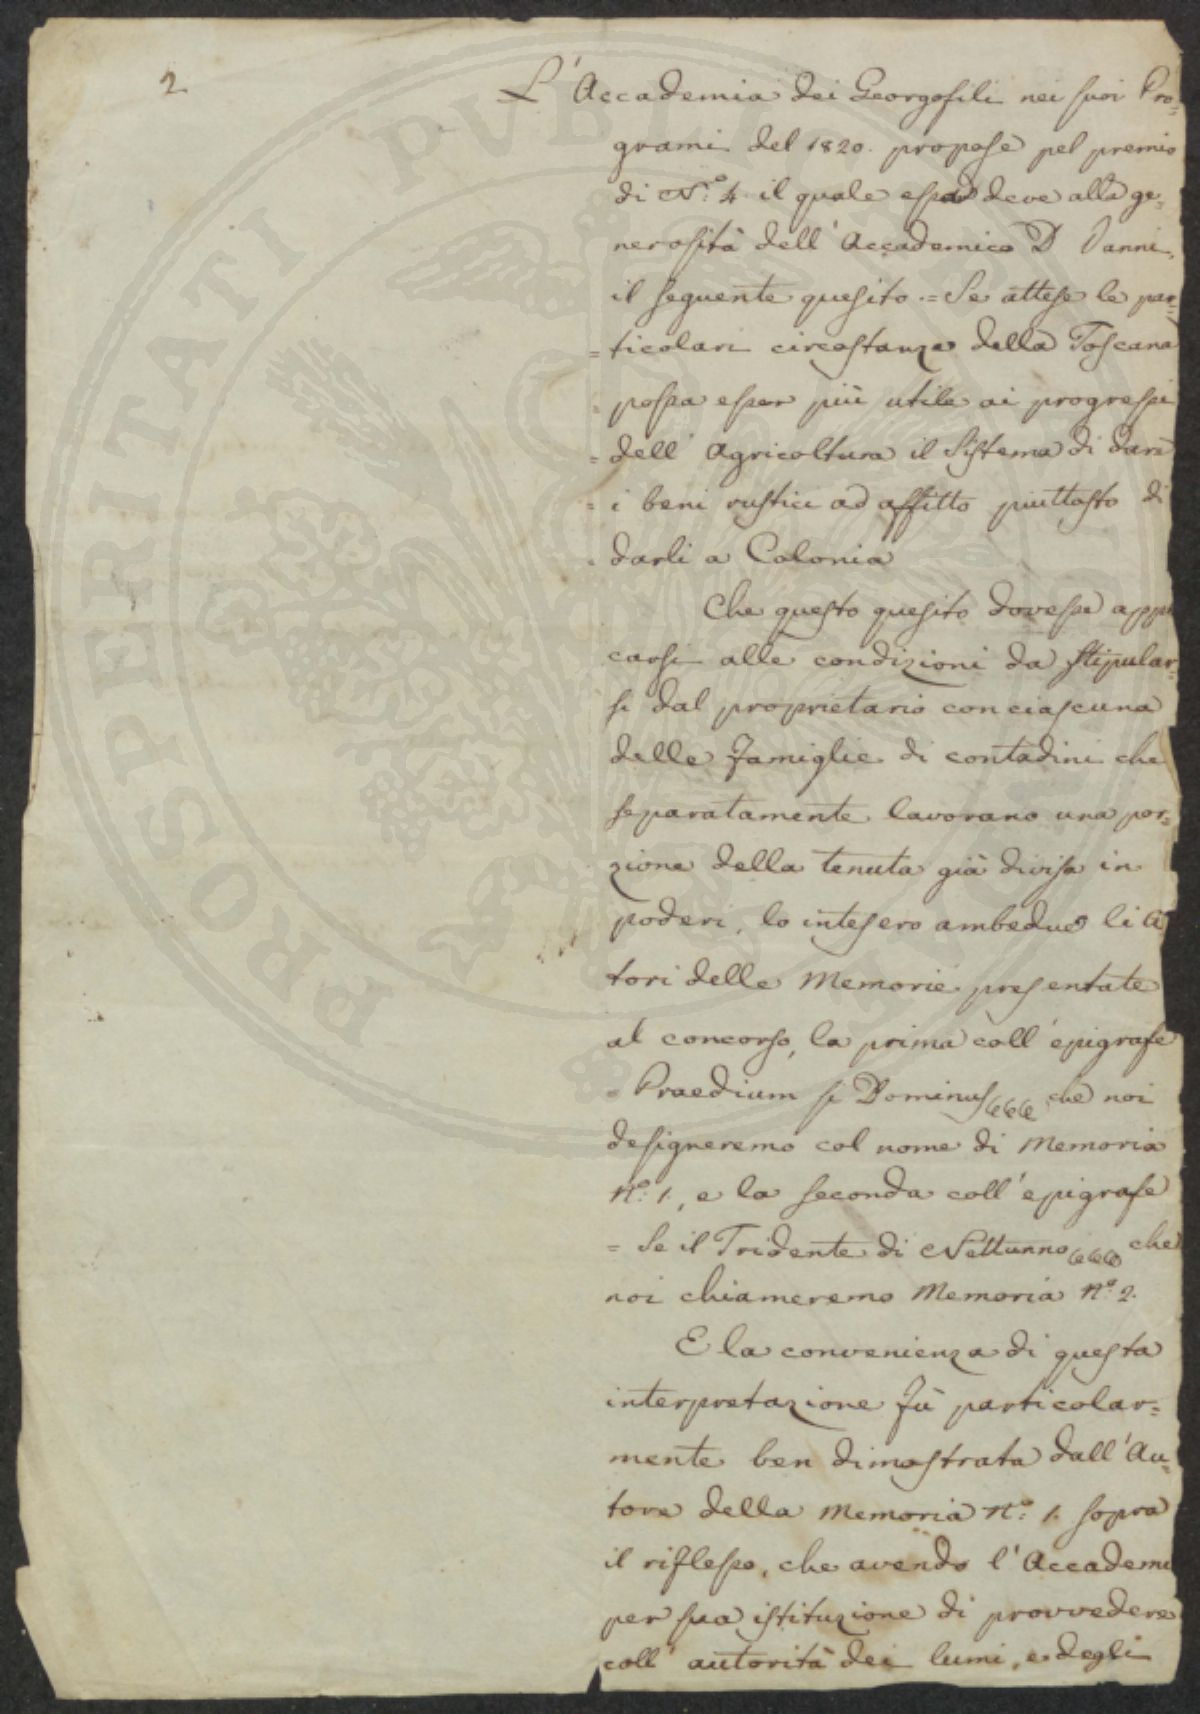 2
L'Accademia dei Georgofili nei suoi Pro=
grami del 1820. propose pel premio
di N.° 4 il quale essa deve alla ge=
nerosità dell'Accademico D Vanni,
il seguente quesito .= Se attese le par=
= ticolari circostanze della Toscana
= possa esser più utile ai progressi
= dell'Agricoltura il Sistema di dare
= i beni rustici ad affitto piuttosto di
= darli a Colonia
Che questo quesito dovesse appli
carsi alle condizioni da stipular=
si dal proprietario con ciascuna
delle famiglie di contadini che
separatamente lavorano una por=
zione della tenuta già divisa in
poderi, lo intesero ambedue li A
tori delle Memorie presentate
al concorso, la prima coll'epigrafe
= Praedium si Dominus che noi
designeremo col nome di Memoria
N.° 1, e la seconda coll'epigrafe
= Se il Tridente di Nettunno che
noi chiameremo Memoria N.° 2.
E la convenienza di questa
interpretazione fù particolar=
mente ben dimostrata dall'Au=
tore della Memoria N.° 1. sopra
il riflesso, che avendo l'Accademi
per sua istituzione di provvedere
coll'autorità dei lumi, e degli
PROSPERITATI PUBLICAE